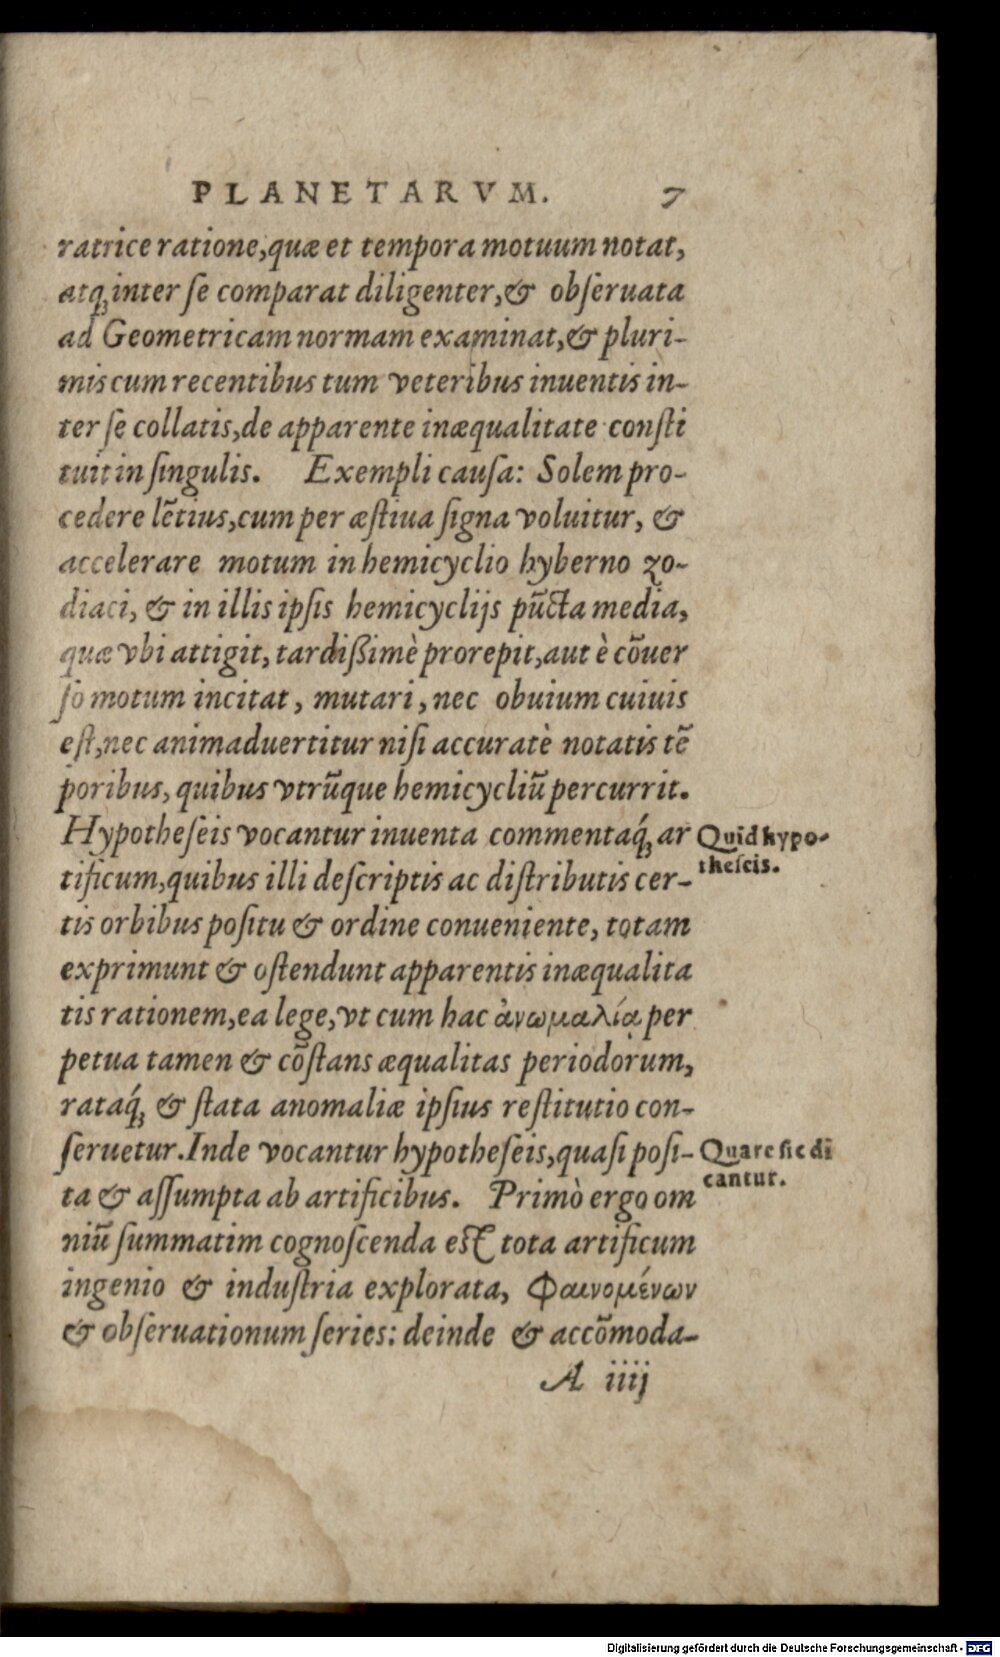 PLANETARVM. 7
ratrice ratione, quæ et tempora motuum notat,
atq; inter se comparat diligenter, & obseruata
ad Geometricam normam examinat, & pluri-
mis cum recentibus tum veteribus inuentis in-
ter se collatis, de apparente inæqualitate consti
tuit in singulis. Exempli causa: Solem pro-
cedere lẽtius, cum per æstiua signa voluitur, &
accelerare motum in hemicyclio hyberno zo-
diaci, & in illis ipsis hemicyclijs pũcta media,
quæ vbi attigit, tardißimè prorepit, aut è cõuer
so motum incitat, mutari, nec obuium cuiuis
est, nec animaduertitur nisi accuratè notatis tẽ
poribus, quibus vtrũque hemicycliũ percurrit.
Hypotheseis vocantur inuenta commentaq́; ar
Quid hypo-
theseis.
tificum, quibus illi descriptis ac distributis cer-
tis orbibus positu & ordine conueniente, totam
exprimunt & ostendunt apparentis inæqualita
tis rationem, ea lege, vt cum hac ἀνωμαλίᾳ per
petua tamen & cõstans æqualitas periodorum,
rataq́; & stata anomaliæ ipsius restitutio con-
seruetur. Inde vocantur hypotheseis, quasi posi-
Quare sic di
cantur.
ta & assumpta ab artificibus. Primò ergo om
niũ summatim cognoscenda est tota artificum
ingenio & industria explorata, Φαινομένων
& obseruationum series: deinde & accõmoda-
A iiij
Digitalisierung gefördert durch die Deutsche Forschungsgemeinschaft - DFG